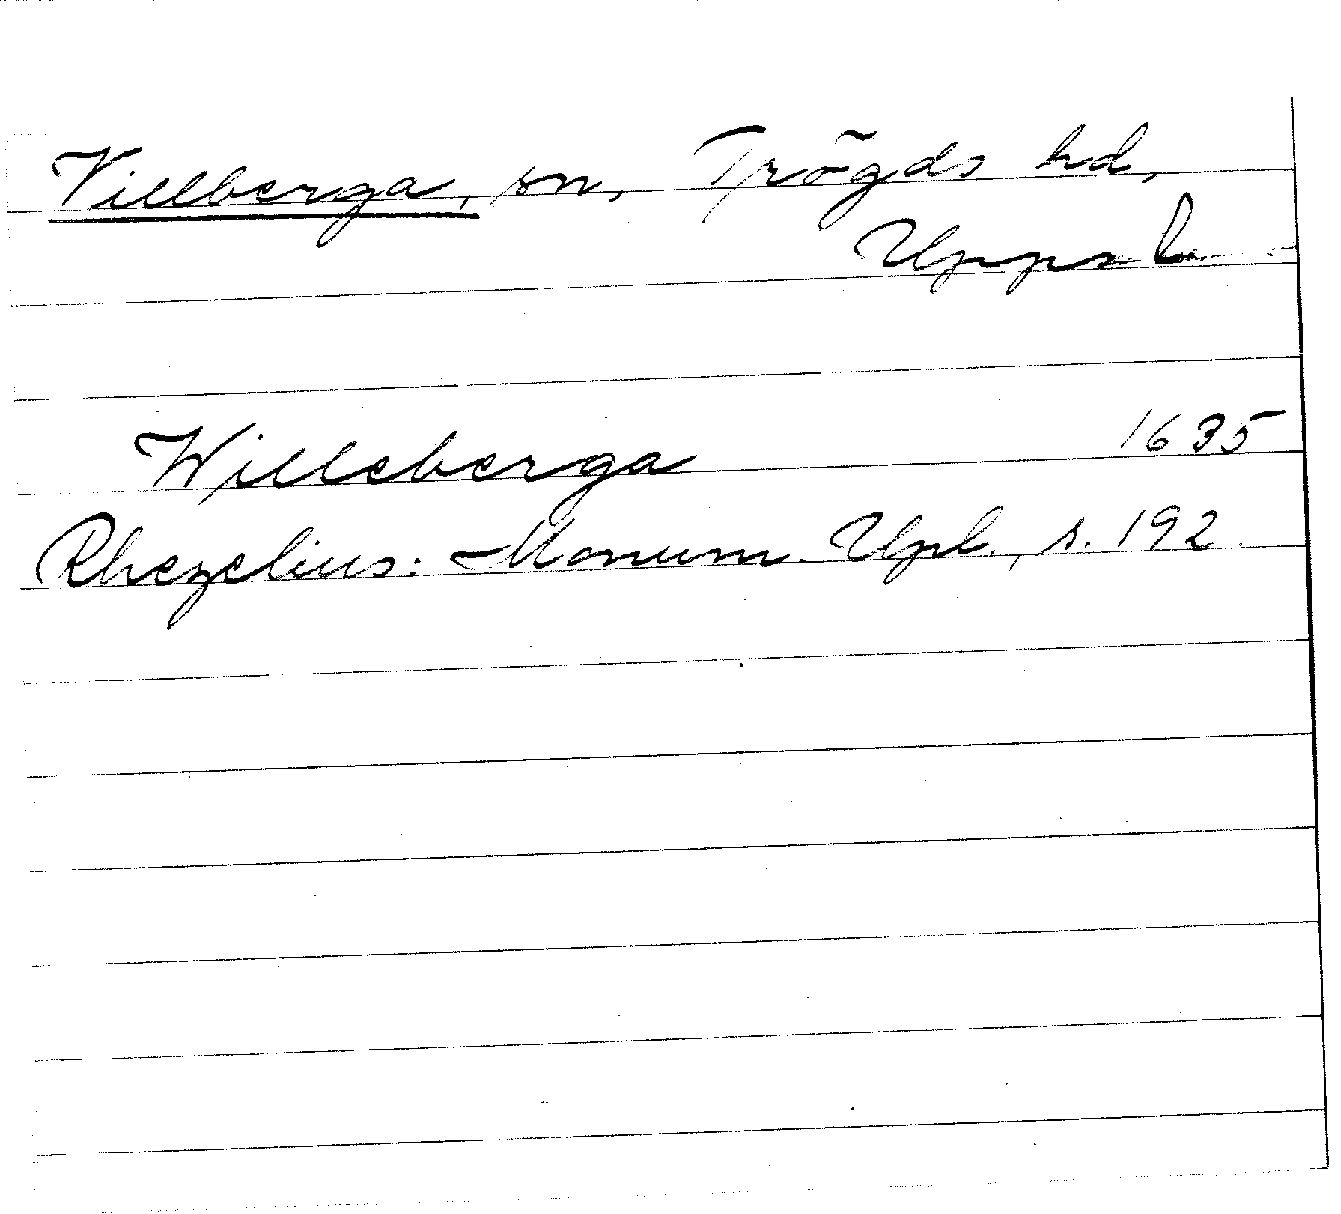 Villberga, sn, Trögds hd,
Upps l.
Willeberga 1635
Rhezelius: Monum. Upl., s. 192.